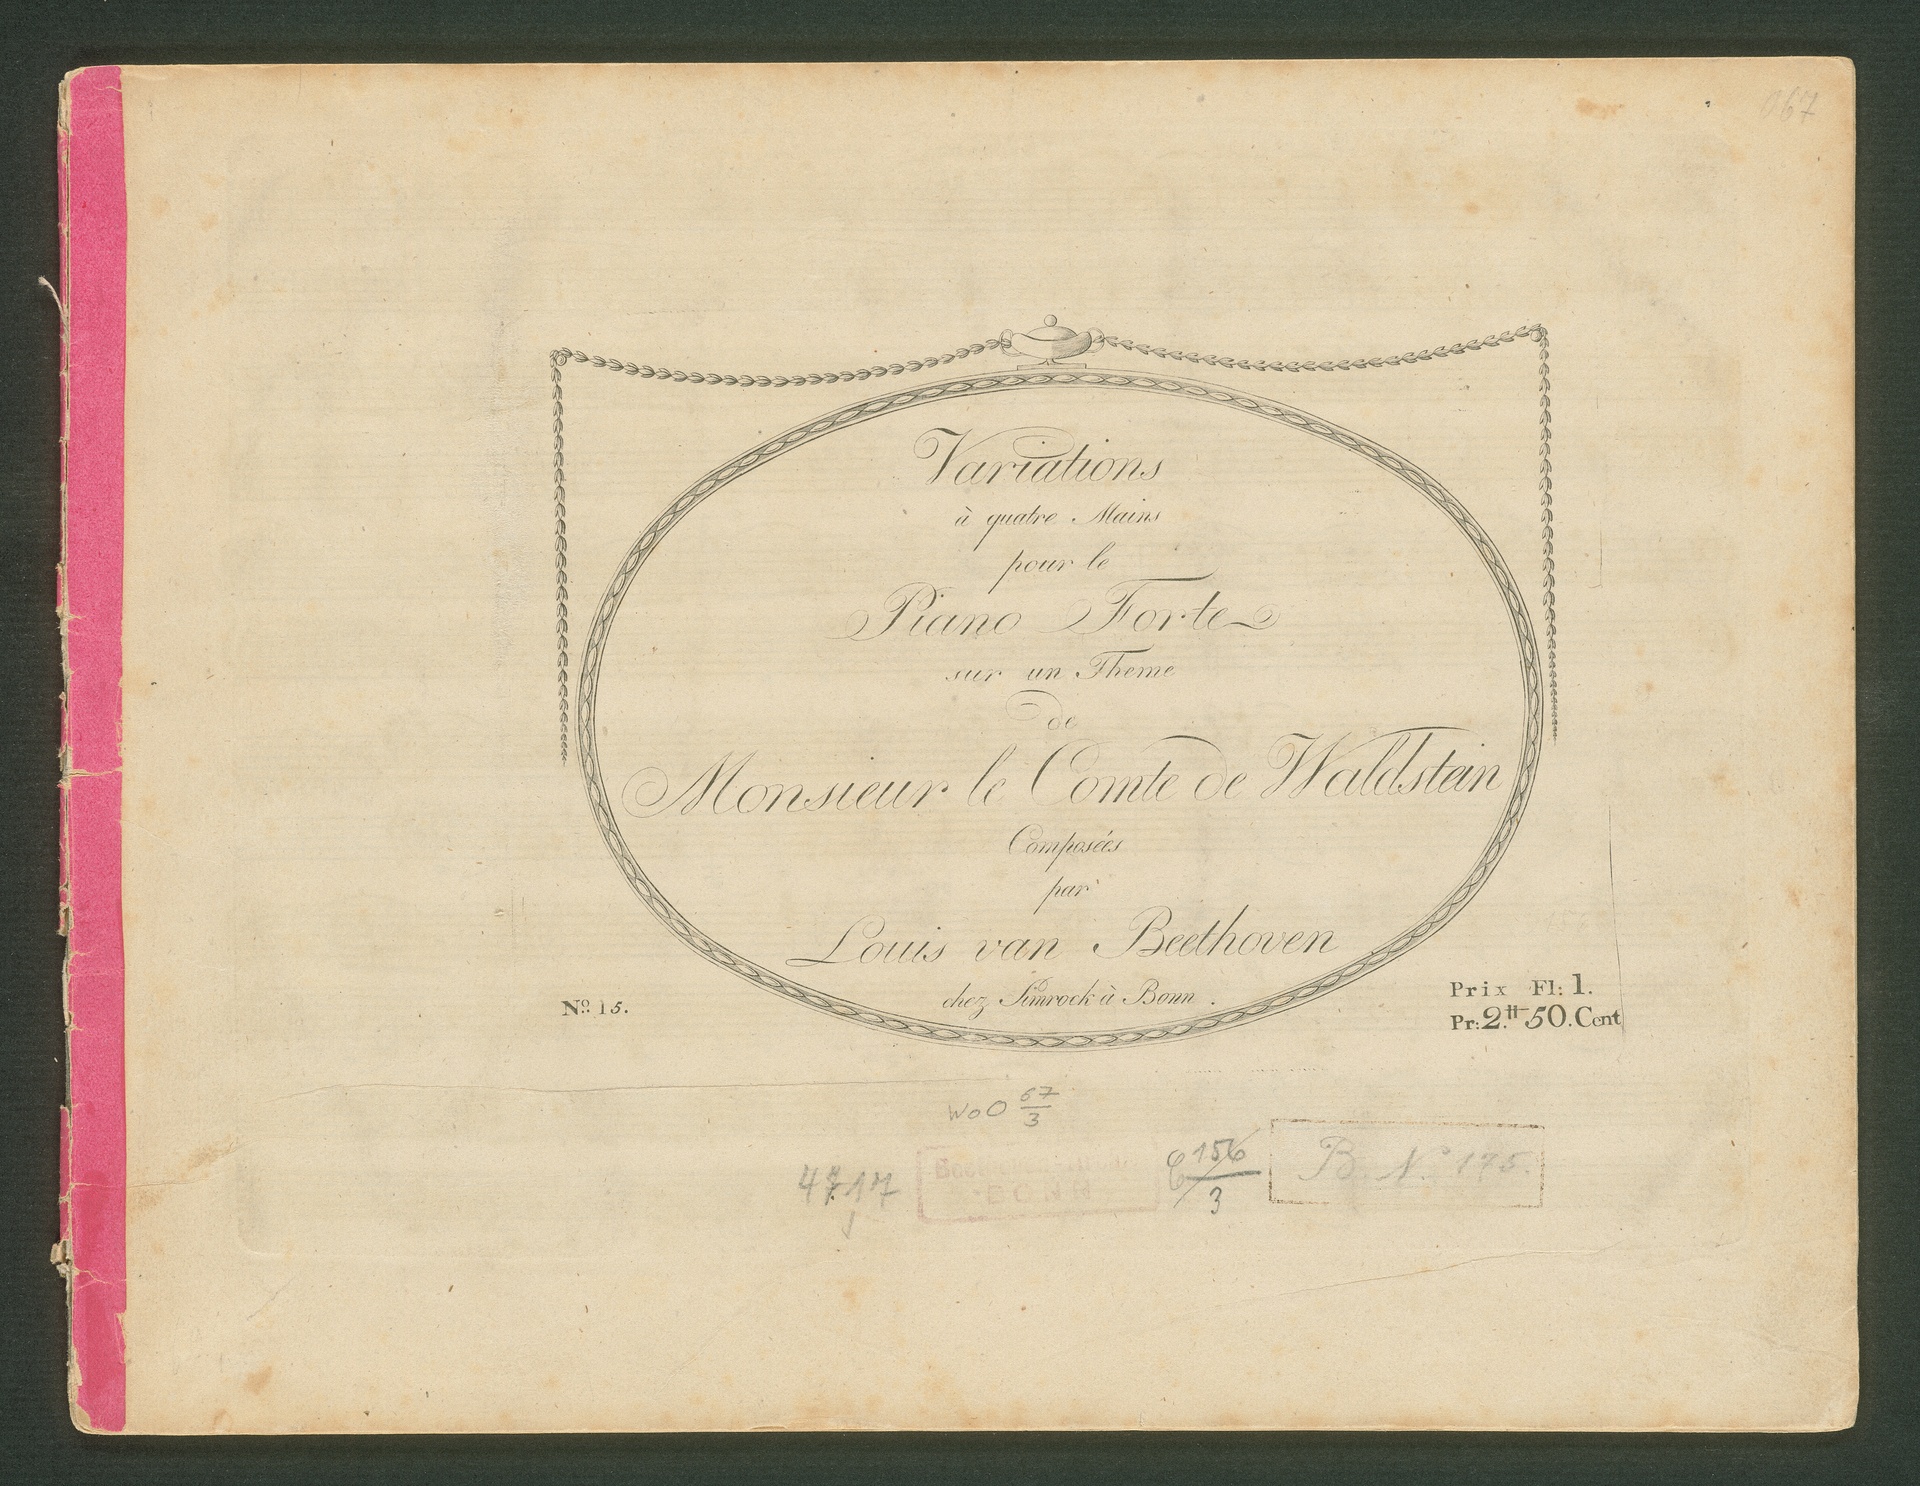 067
Variations
à quatre Mains
pour le
Piano Forte
sur un Theme
de
Monsieur le Comte de Waldstein
Composées
par
Louis van Beethoven
chez Simrock à Bonn.
No. 15.
Prix Fl: 1.
Pr: 2.tt 50. Cent
WoO 67/3
BONN
156/3
B. No 175.